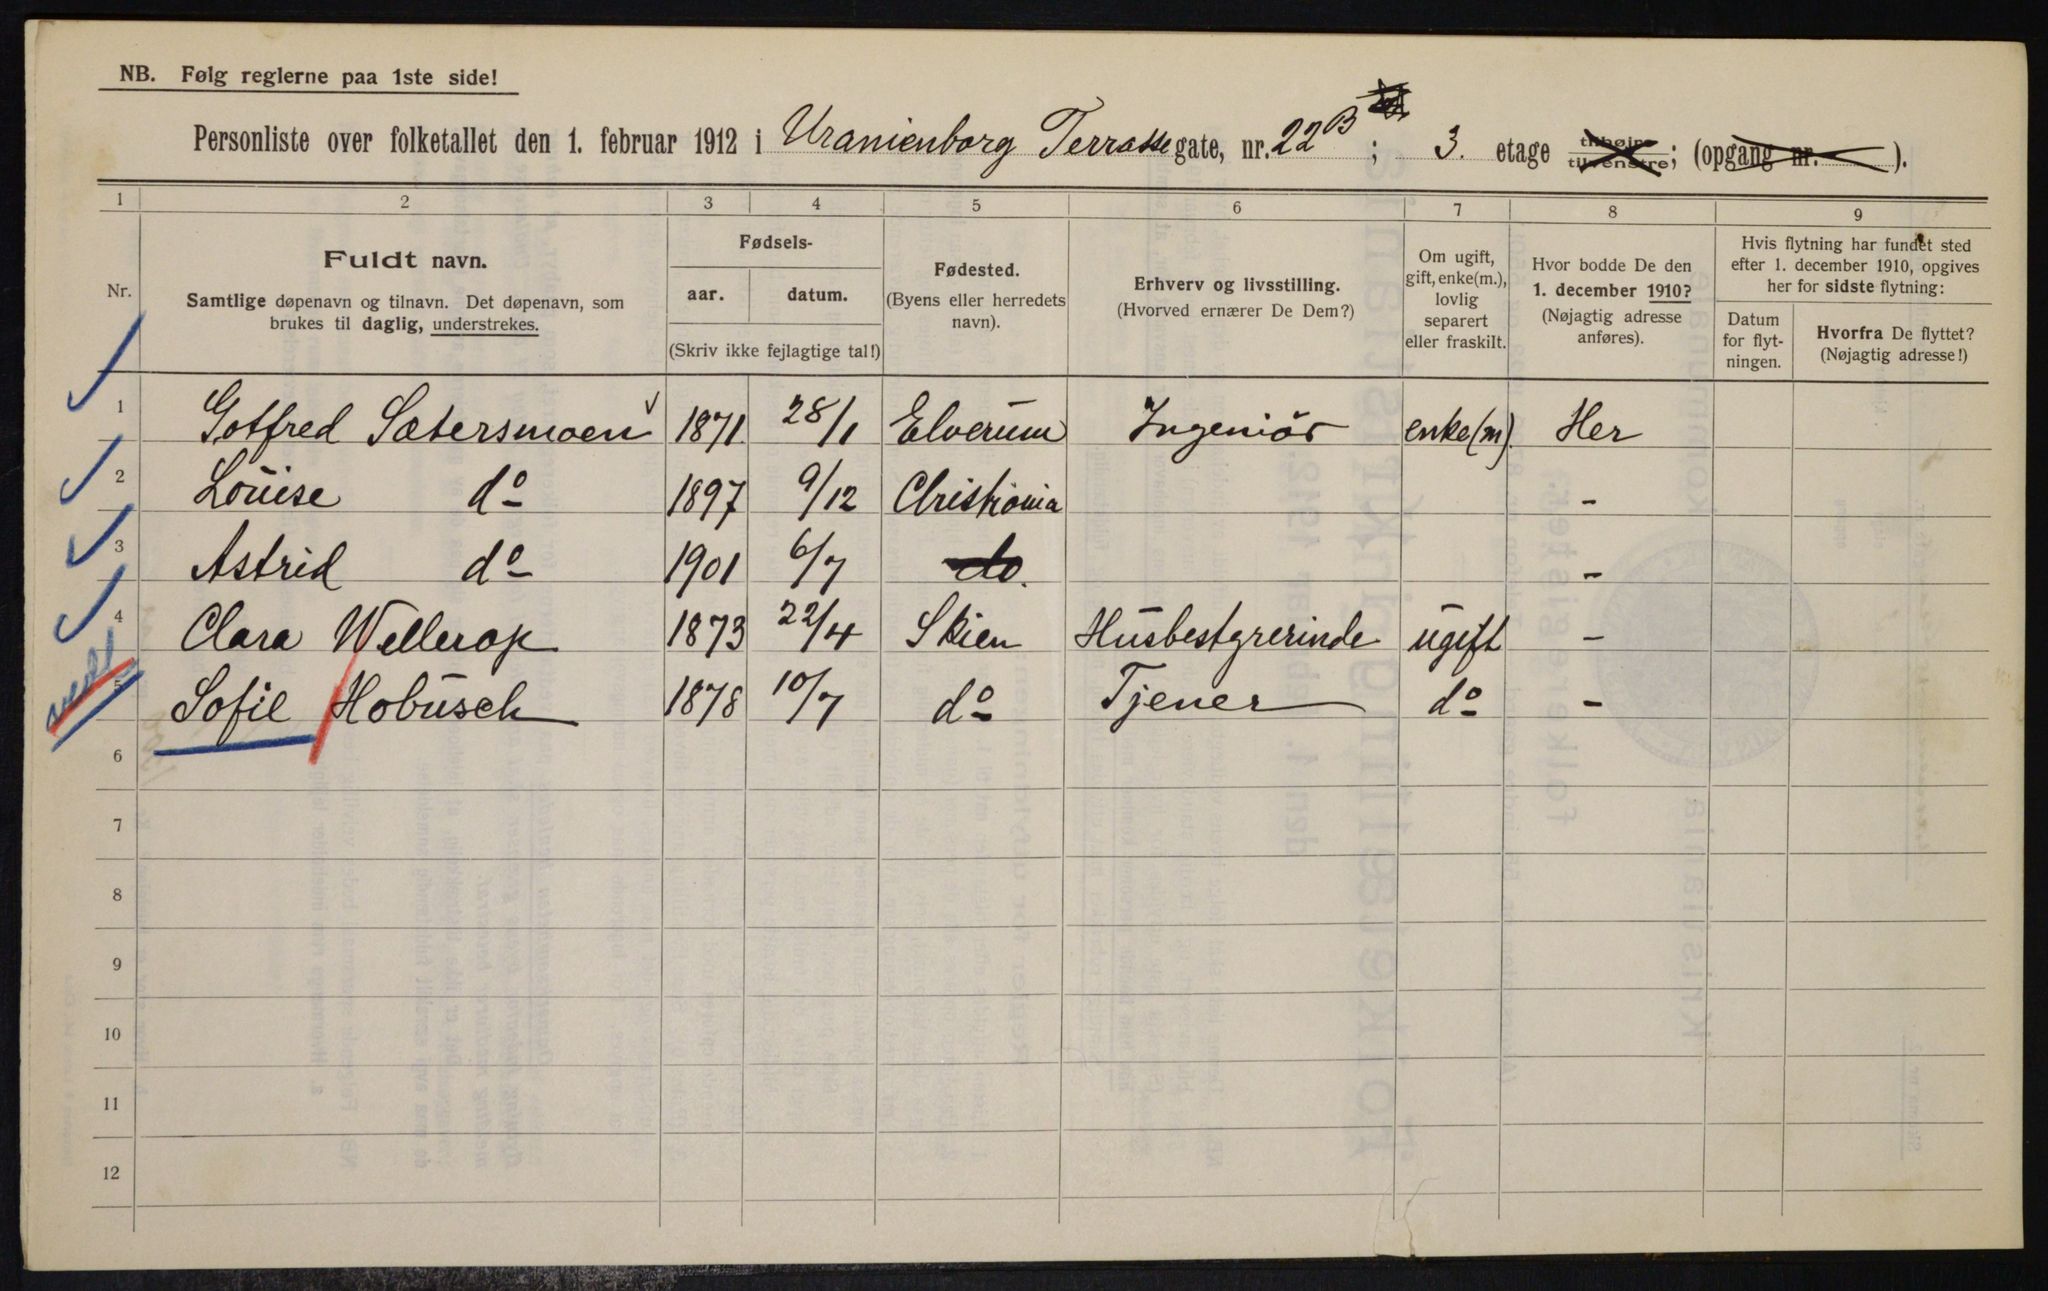 NB. Følg reglerne paa 1ste side!
Personliste over folketallet den 1. februar 1912 i Uranienborg Terrasse gate, nr. 22 B ; 3. etage tilhøire tilvenstre; (opgang nr. ).
1 2 3 4 5 6 7 8 9
Nr.
Fuldt navn.
Samtlige døpenavn og tilnavn. Det døpenavn, som
brukes til daglig, understrekes.
Fødsels-
aar. datum.
(Skriv ikke fejlagtige tal!)
Fødested.
(Byens eller herredets
navn).
Erhverv og livsstilling.
(Hvorved ernærer De Dem?)
Om ugift,
gift, enke(m.),
lovlig
separert
eller fraskilt.
Hvor bodde De den
1. december 1910?
(Nøjagtig adresse
anføres).
Hvis flytning har fundet sted
efter 1. december 1910, opgives
her for sidste flytning:
Datum
for flyt-
ningen.
Hvorfra De flyttet?
(Nøjagtig adresse!)
1 Gotfred Sætersmoen 1871 28/1 Elverum Ingeniör enke(m) Her
2 Louise do 1897 9/12 Christiania -
3 Astrid do 1901 6/7 do. -
4 Clara Wellerop 1873 22/4 Skien Husbestyrerinde ugift -
5 Sofie Hobusch 1878 10/7 do Tjener do -
6
7
8
9
10
11
12